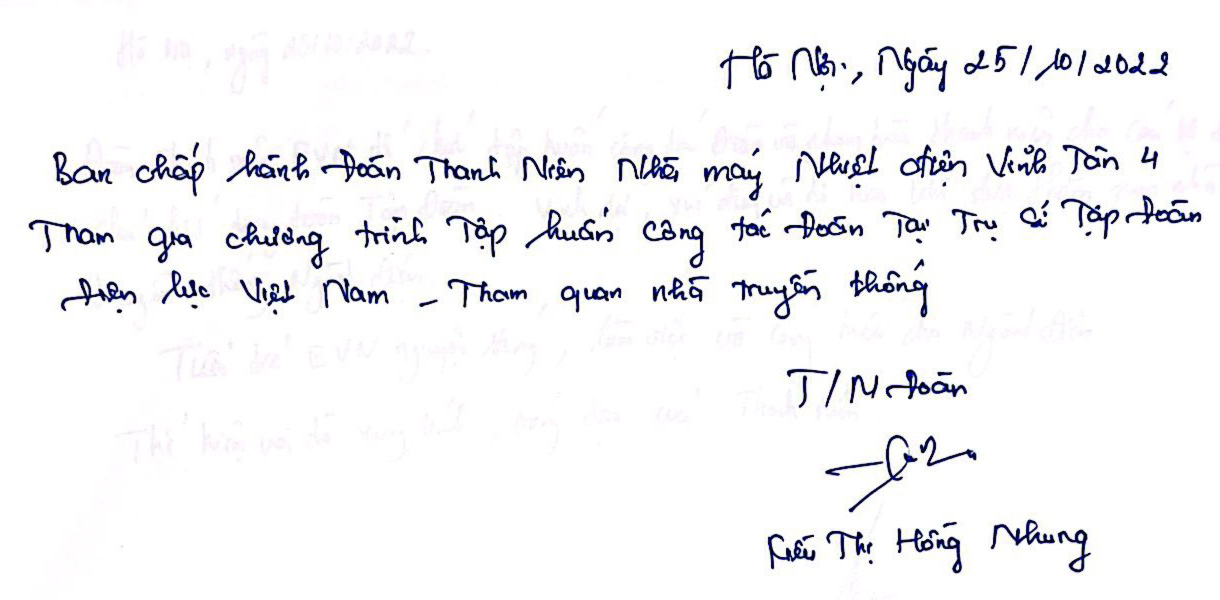 Hà Nội, Ngày 25/10/2022
Ban chấp hành Đoàn Thanh Niên Nhà máy Nhiệt điện Vĩnh Tân 4
Tham gia chương trình Tập huấn công tác Đoàn Tại Trụ Sở Tập Đoàn
Điện lực Việt Nam - Tham quan nhà truyền thống
T/M Đoàn
Kiều Thị Hồng Nhung